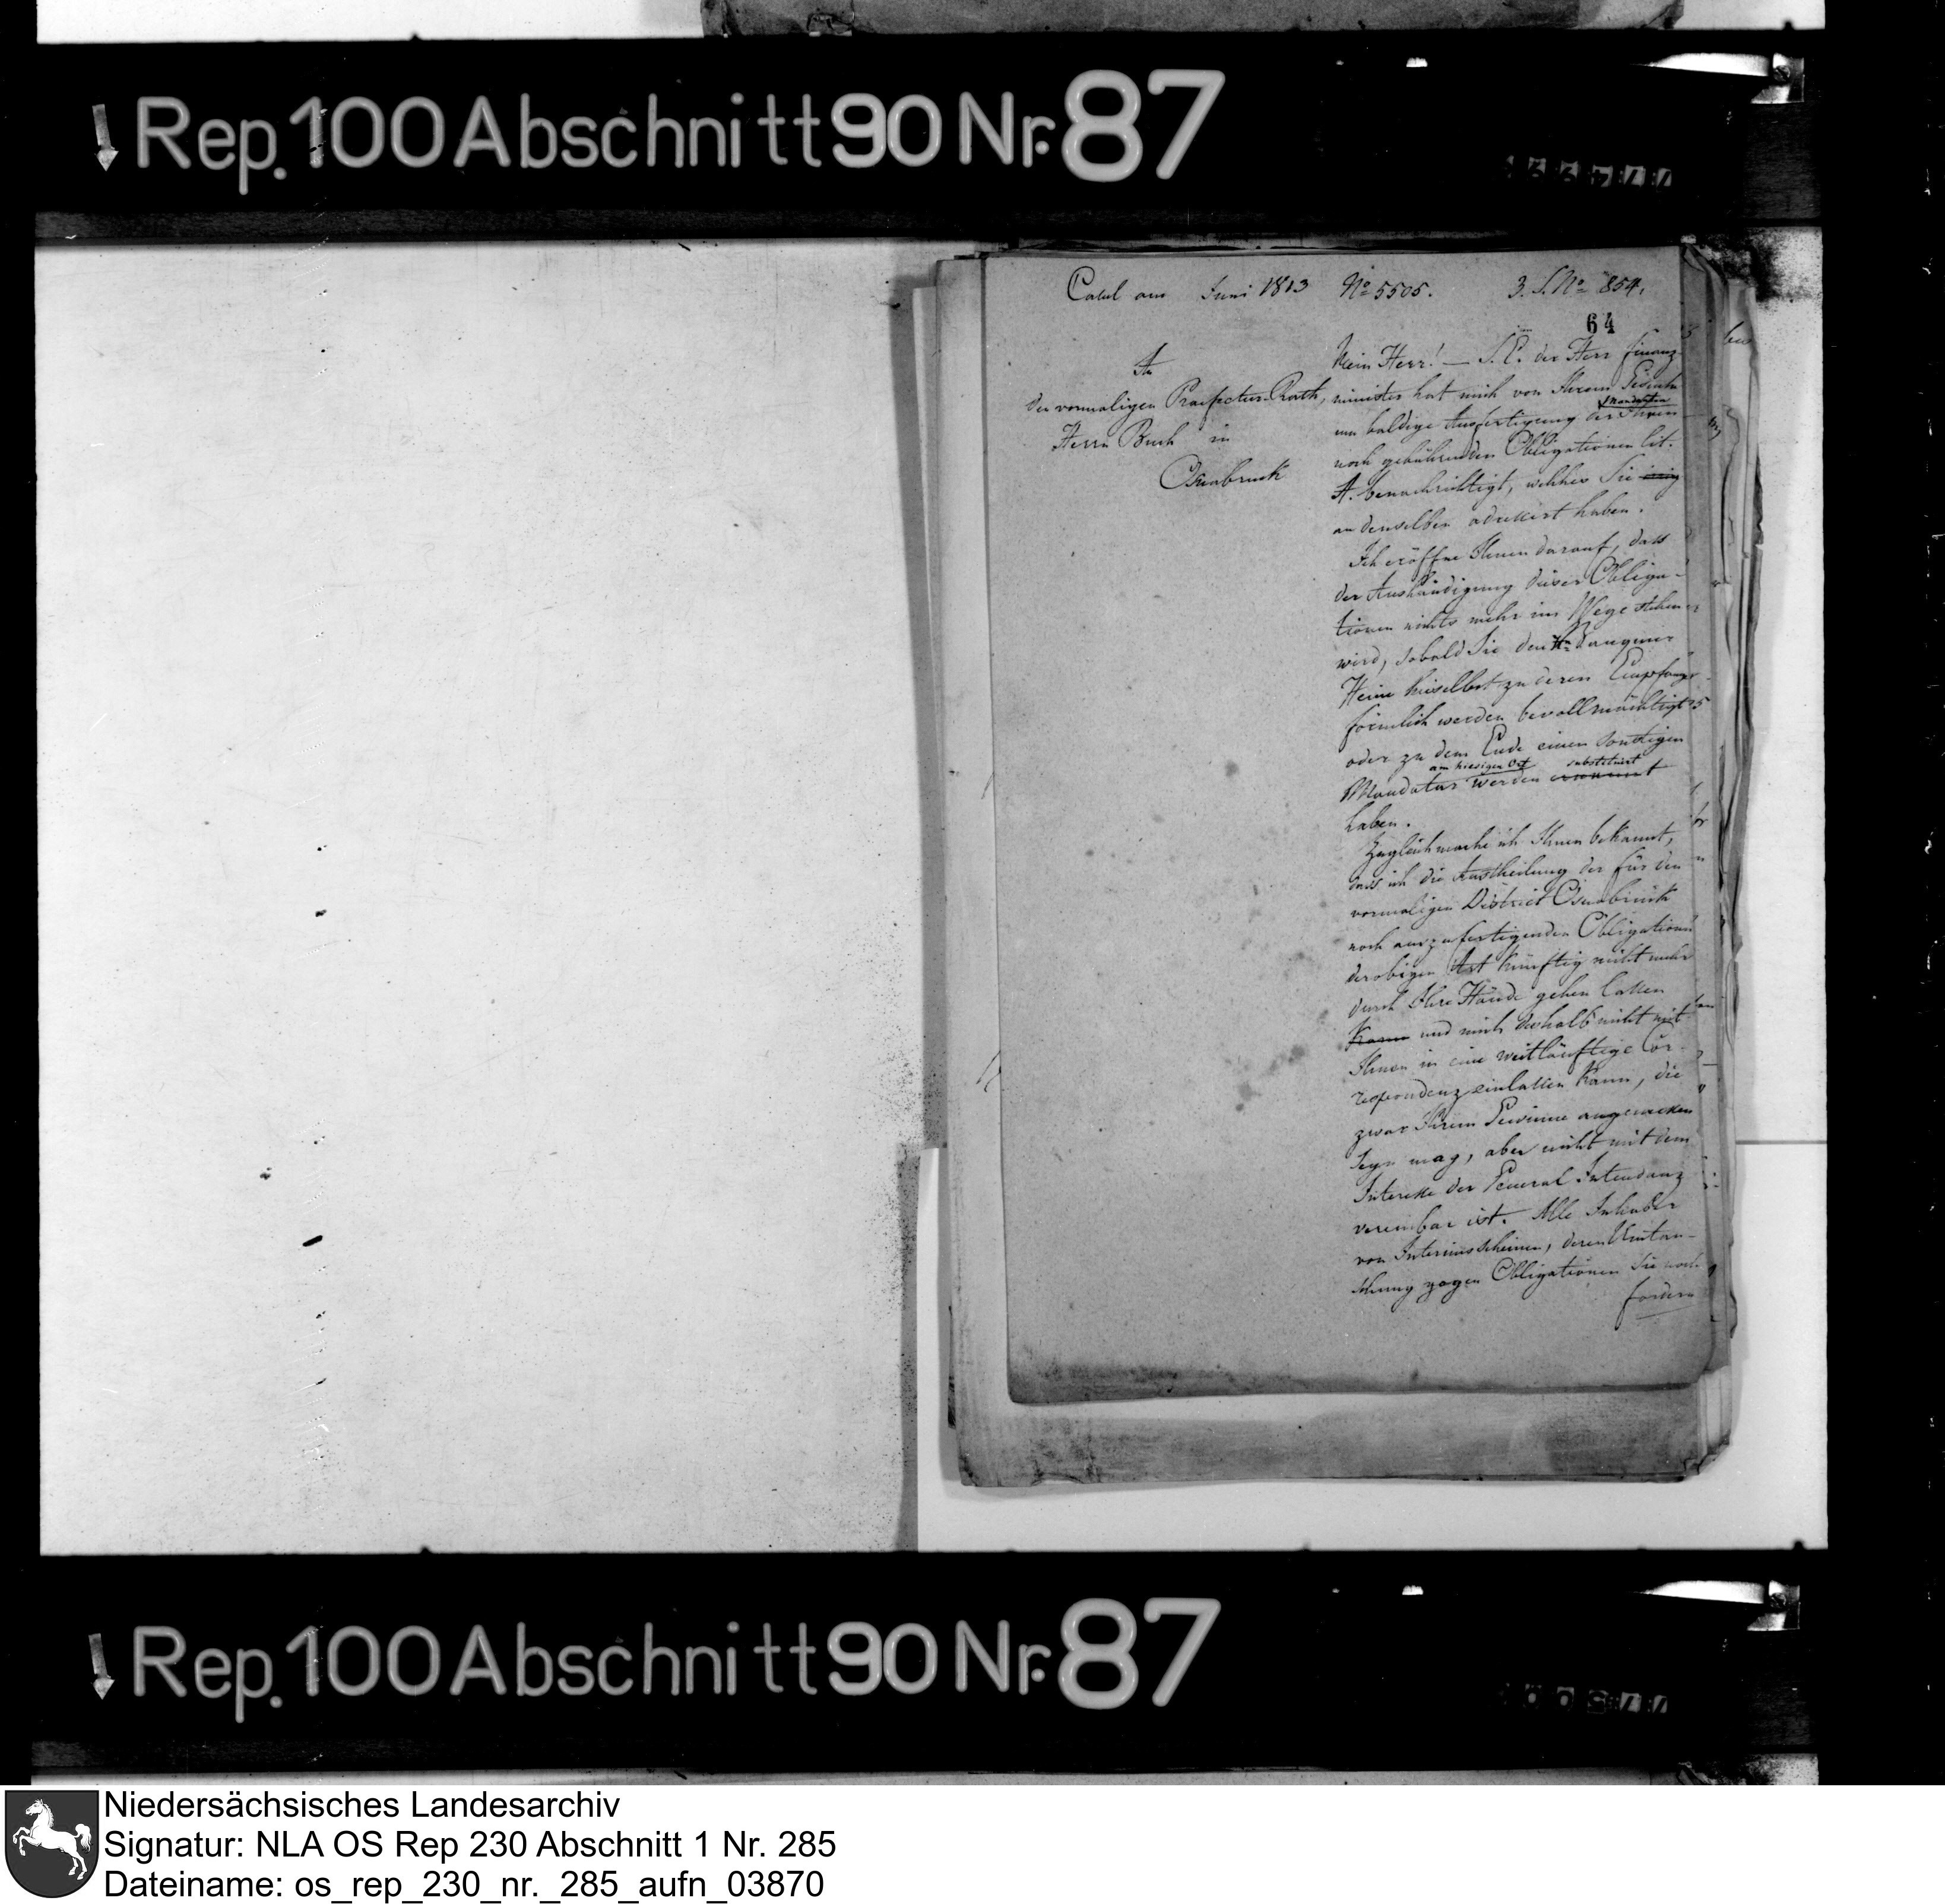 Rep. 100 Abschnitt 90 Nr. 87
Cassel am Juni 1813 No 5505. 3. S. No 854.
64
An
den vormaligen Praefectur-Rath,
Herrn Buch in
Osnabruck
Mein Herr! — S. E. der Herr Finanz-
minister hat mich von Ihrem Gesuche
mandaten
um baldige Ausfertigung der Ihnen
noch gebührenden Obligationen lit.
A. benachrichtigt, welches Sie
an denselben adressirt haben.
Ich eröffne Ihnen darauf, dass
der Aushändigung dieser Obliga-
tionen nichts mehr im Wege stehen
wird, sobald Sie den Banquier
Heine hieselbst zu deren Empfange
förmlich werden bevollmächtigt
oder zu dem Ende einen sonstigen
am hiesigen Ort substituirt
Mandatar werden ernannt
haben.
Zugleich mache ich Ihnen bekannt,
dass ich die Austheilung der für den
vormaligen District Osnabrück
noch auszufertigenden Obligationen
der obigen Art künftig nicht mehr
durch Ihre Hände gehen lassen
kann und mich deshalb nicht mit
Ihnen in eine weitläuftige Cor-
respondenz einlassen kann, die
zwar Ihrem Gewinne angemessen
seyn mag, aber nicht mit dem
Interesse der General Intendanz
vereinbar ist. Alle Inhaber
von Interimsscheinen, deren Umtau-
schung gegen Obligationen Sie noch
fordern
Rep. 100 Abschnitt 90 Nr. 87
Niedersächsisches Landesarchiv
Signatur: NLA OS Rep 230 Abschnitt 1 Nr. 285
Dateiname: os_rep_230_nr._285_aufn_03870